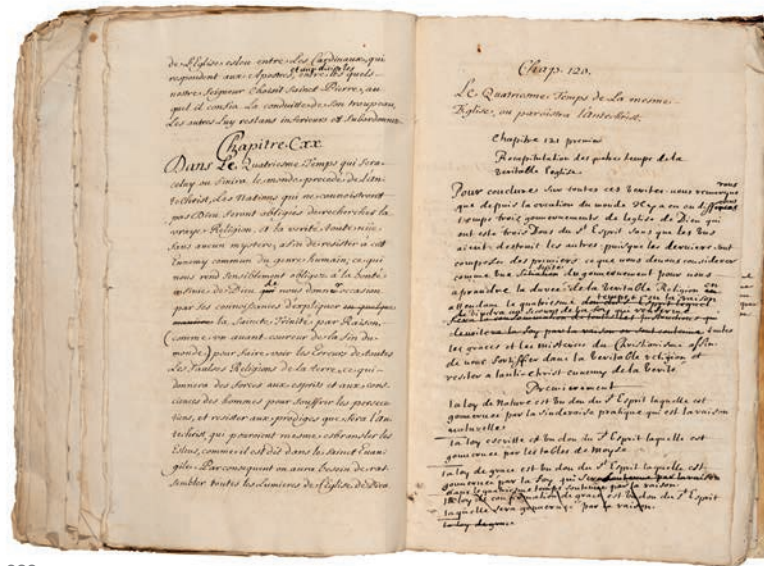 de L'Eglise eslou entre Les Cardinaux, qui
et aux disciples
respondent aux Apostres, entre les quels
nostre Seigneur Choisit Sainct Pierre, au
quel il confia La conduitte de Son trouppeau,
Les autres Luy restans inferieurs et Subordonnez
Chapitre Cxx
Dans Le Quatriesme Temps qui Sera
celuy ou finira le monde precede de L'an-
techrist, Les Nations qui ne connoistront
pas Dieu Seront obligées de rechercher la
vraye Religion, et la verité toute nüe
Sans aucun mystere, afin de resister a cet
Ennemy commun du genre humain; ce qui
nous rend Sensiblement obligez a la bonté
infinie de Dieu, qui de nous donner occasion
par Ses connoissances d'expliquer en quelque
maniere la Saincte Trinité par Raison,
(comme un avant coureur de la fin du
monde) pour faire voir les Erreurs de toutes
Les Faulses Religions de la Terre, ce qui
donnera des forces aux esprits et aux cons-
ciences des hommes pour Souffrir les persecu-
tions, et resister aux prodiges que fera l'an-
techrist, qui pouroient mesme esbransler les
Esleus, comme il est dit dans le Sainct Euan-
gile. Par consequent on aura besoin de ras-
sembler toutes les Lumieres de L'Eglise de Dieu
Chap. 120.
Le Quatriesme Temps de La mesme
Eglise, ou paroistra l'antechrist.
Chapitre 121 premier
Recapitulation des quatre temps de la
veritable Eglise
Pour conclure Sur toutes ces veritez nous remarquerons
que depuis la creation du monde il y a eu en differens
temps trois gouvernements de leglise de Dieu qui
ont esté trois Dons du St Esprit Sans que les uns
aient destruit les autres puisque les derniers sont
composez des premiers ce que nous devons considerer
comme une du gouvernement pour nous
aprendre la durée de la veritable Religion en
attendant le quatriesme temps ou la raison
toutes
les graces et les misteres du Christianisme affin
de nous fortiffier dans la veritable religion et
resister a lanti-christ ennemy de la verité
Premierement
la loy de Nature est un don du St Esprit laquelle est
gouvernée par la Sinderaise pratique qui est la raison
naturelle
la loy escritte est un don du St Esprit laquelle est
gouvernée par les tables de Moyse
la loy de grace est un don du St Esprit laquelle est
gouvernée par la foy qui sera soutenue par la raison
dans le quatriesme temps soutenue par la raison.
la loy de confirmation de grace est un don du St Esprit
laquelle sera gouvernée par la raison.
la loy de grace